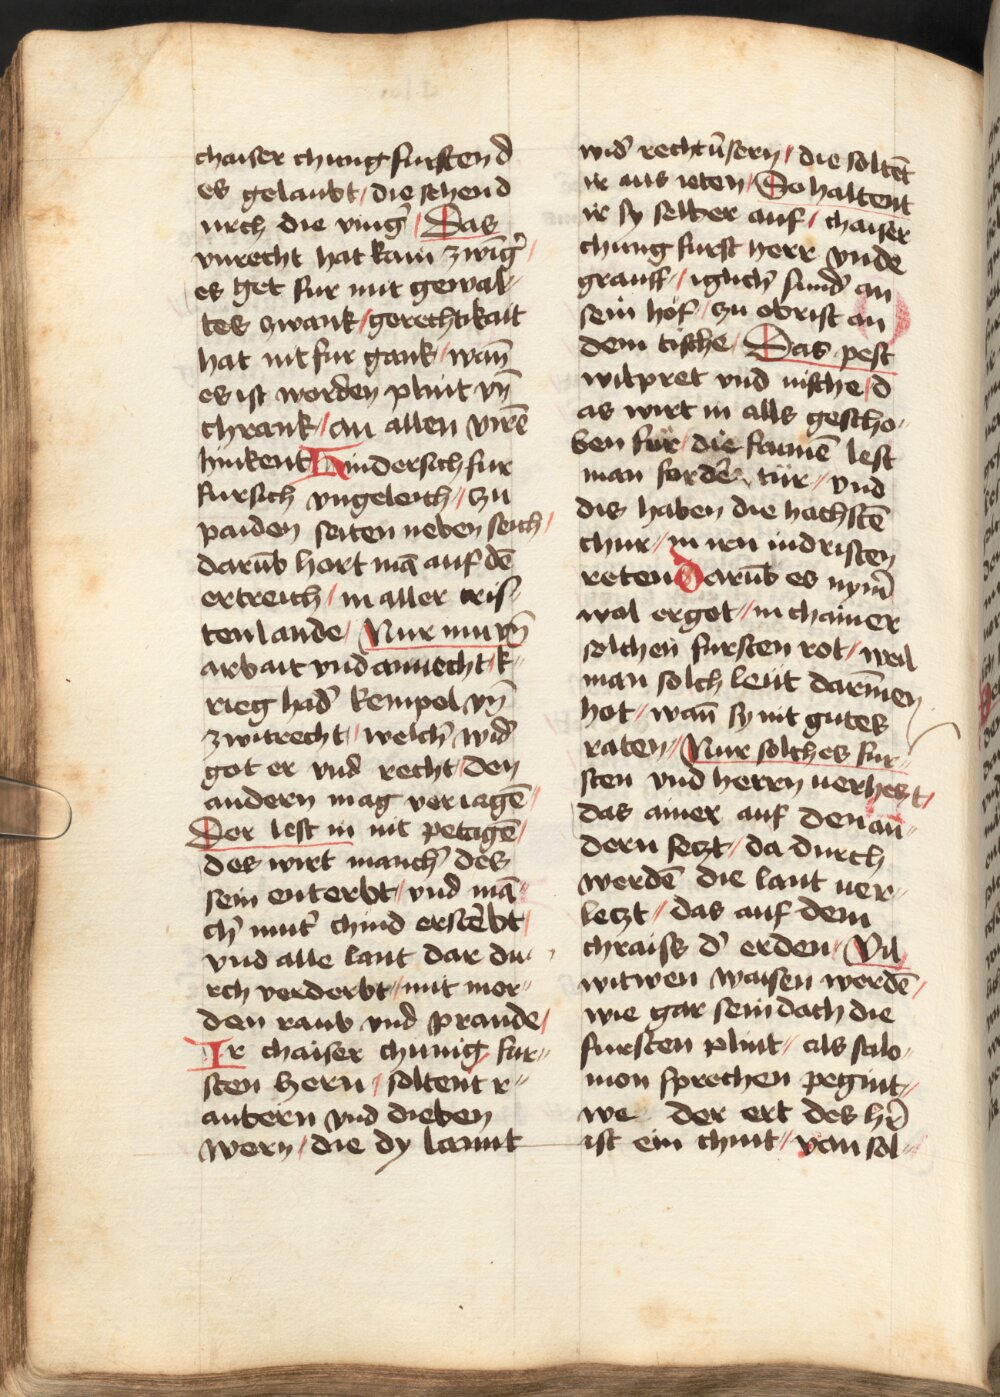 chaiser chunig fursten d̕
es gelaubt / die sehend
urch die ving̕ / Das
vnrecht hat kain zwīg̕ /
es get fur mit gewal-
tes zwank / gerechtikait
hat nit fur gank / wan̄
es ist worden plint vn̄
chrank / an allen virē
hinkent Hindersich fur
fursich vngeleich / zu
paiden seiten neben seich /
darūb hort mā auf dē
ertreich / in aller cris-
tenlande / Nur mu vn̄
arbait vnd ainuecht / k-
rieg had̕ kempel vn̄
zwitrecht / welch̕ wid̕
got er vnd recht / den
andern mag veriagē /
Der lest in nit petagē /
des wirt manch̕ des
sein enterbt / vnd mā-
ch̕ mut̕ chind erstērbt /
vnd alle lant dar du-
rch verderbt / mit mor-
den raub vnd prande /
Ir chaiser chunig fur-
sten hern / soltent r-
aubern vnd dieben
wern / die dy lannt
wid̕ rechtūsern / die soltēt
ir aus ieten / So haltent
ir sy selber auf / chaiser
chung furst herr vnde
grauff / iglich̕ sund̕ an
sein hof / zu obrist an
dem tische / Das pest
wilpret vnd uische / d
as wirt in alls gescho-
ben für / die frumē lest
man ford̕ tür / vnd
dis haben die hochstē
chur / in irn indristen
reten Darūb es nym̄
wol ergot / in chainer
solchen fursten rot / weil
man solch leut darīnen
hot / wan̄ sy nit gutes
raten / Nur solches fur-
sten vnd herrn uerhezt /
das ainer auf den an-
dern setzt / da durch
werdē die lant uer-
letzt / das auf dem
chraiss d̕ erden / Vil
witwen waisen werdē /
wie gar sein doch die
fursten plint / als salo-
mon sprechen pegint /
we der ert des hr̄
ist ein chint / von sol-